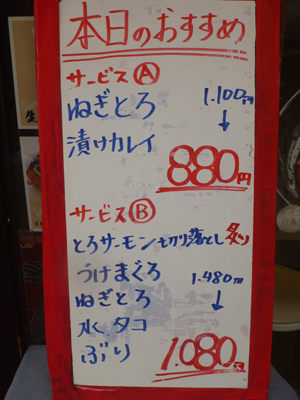 本日のおすすめ
サービスⒶ
ねぎとろ 1.100円
漬けカレイ ↓
880円
サービスⒷ
とろサーモン切り落とし炙り
づけまぐろ 1.480円
ねぎとろ ↓
水タコ
ぶり 1.080円